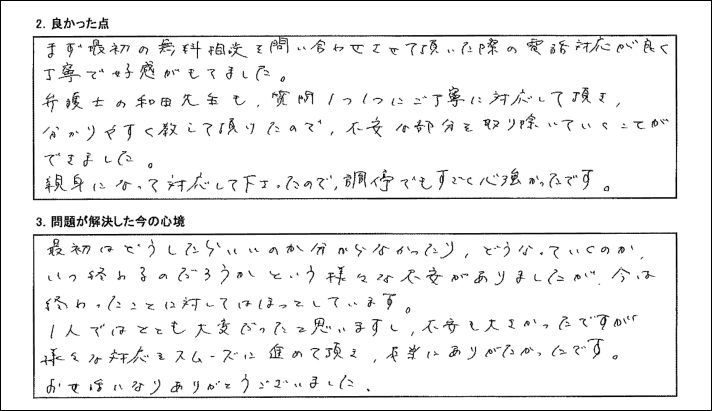 2. 良かった点
まず最初の無料相談を問い合わせさせて頂いた際の電話対応が良く
丁寧で好感がもてました。
弁護士の和田先生も、質問1つ1つにご丁寧に対応して頂き、
分かりやすく教えて頂けたので、不安な部分を取り除いていくことが
できました。
親身になって対応して下さったので、調停でもすごく心強かったです。
3. 問題が解決した今の心境
最初はどうしたらいいのか分からなかったり、どうなっていくのか、
いつ終わるのだろうかという様々な不安がありましたが、今は
終わったことに対してはほっとしています。
1人ではとても大変だったと思いますし、不安も大きかったですが
様々な対応をスムーズに進めて頂き、本当にありがたかったです。
お世話になりありがとうございました。